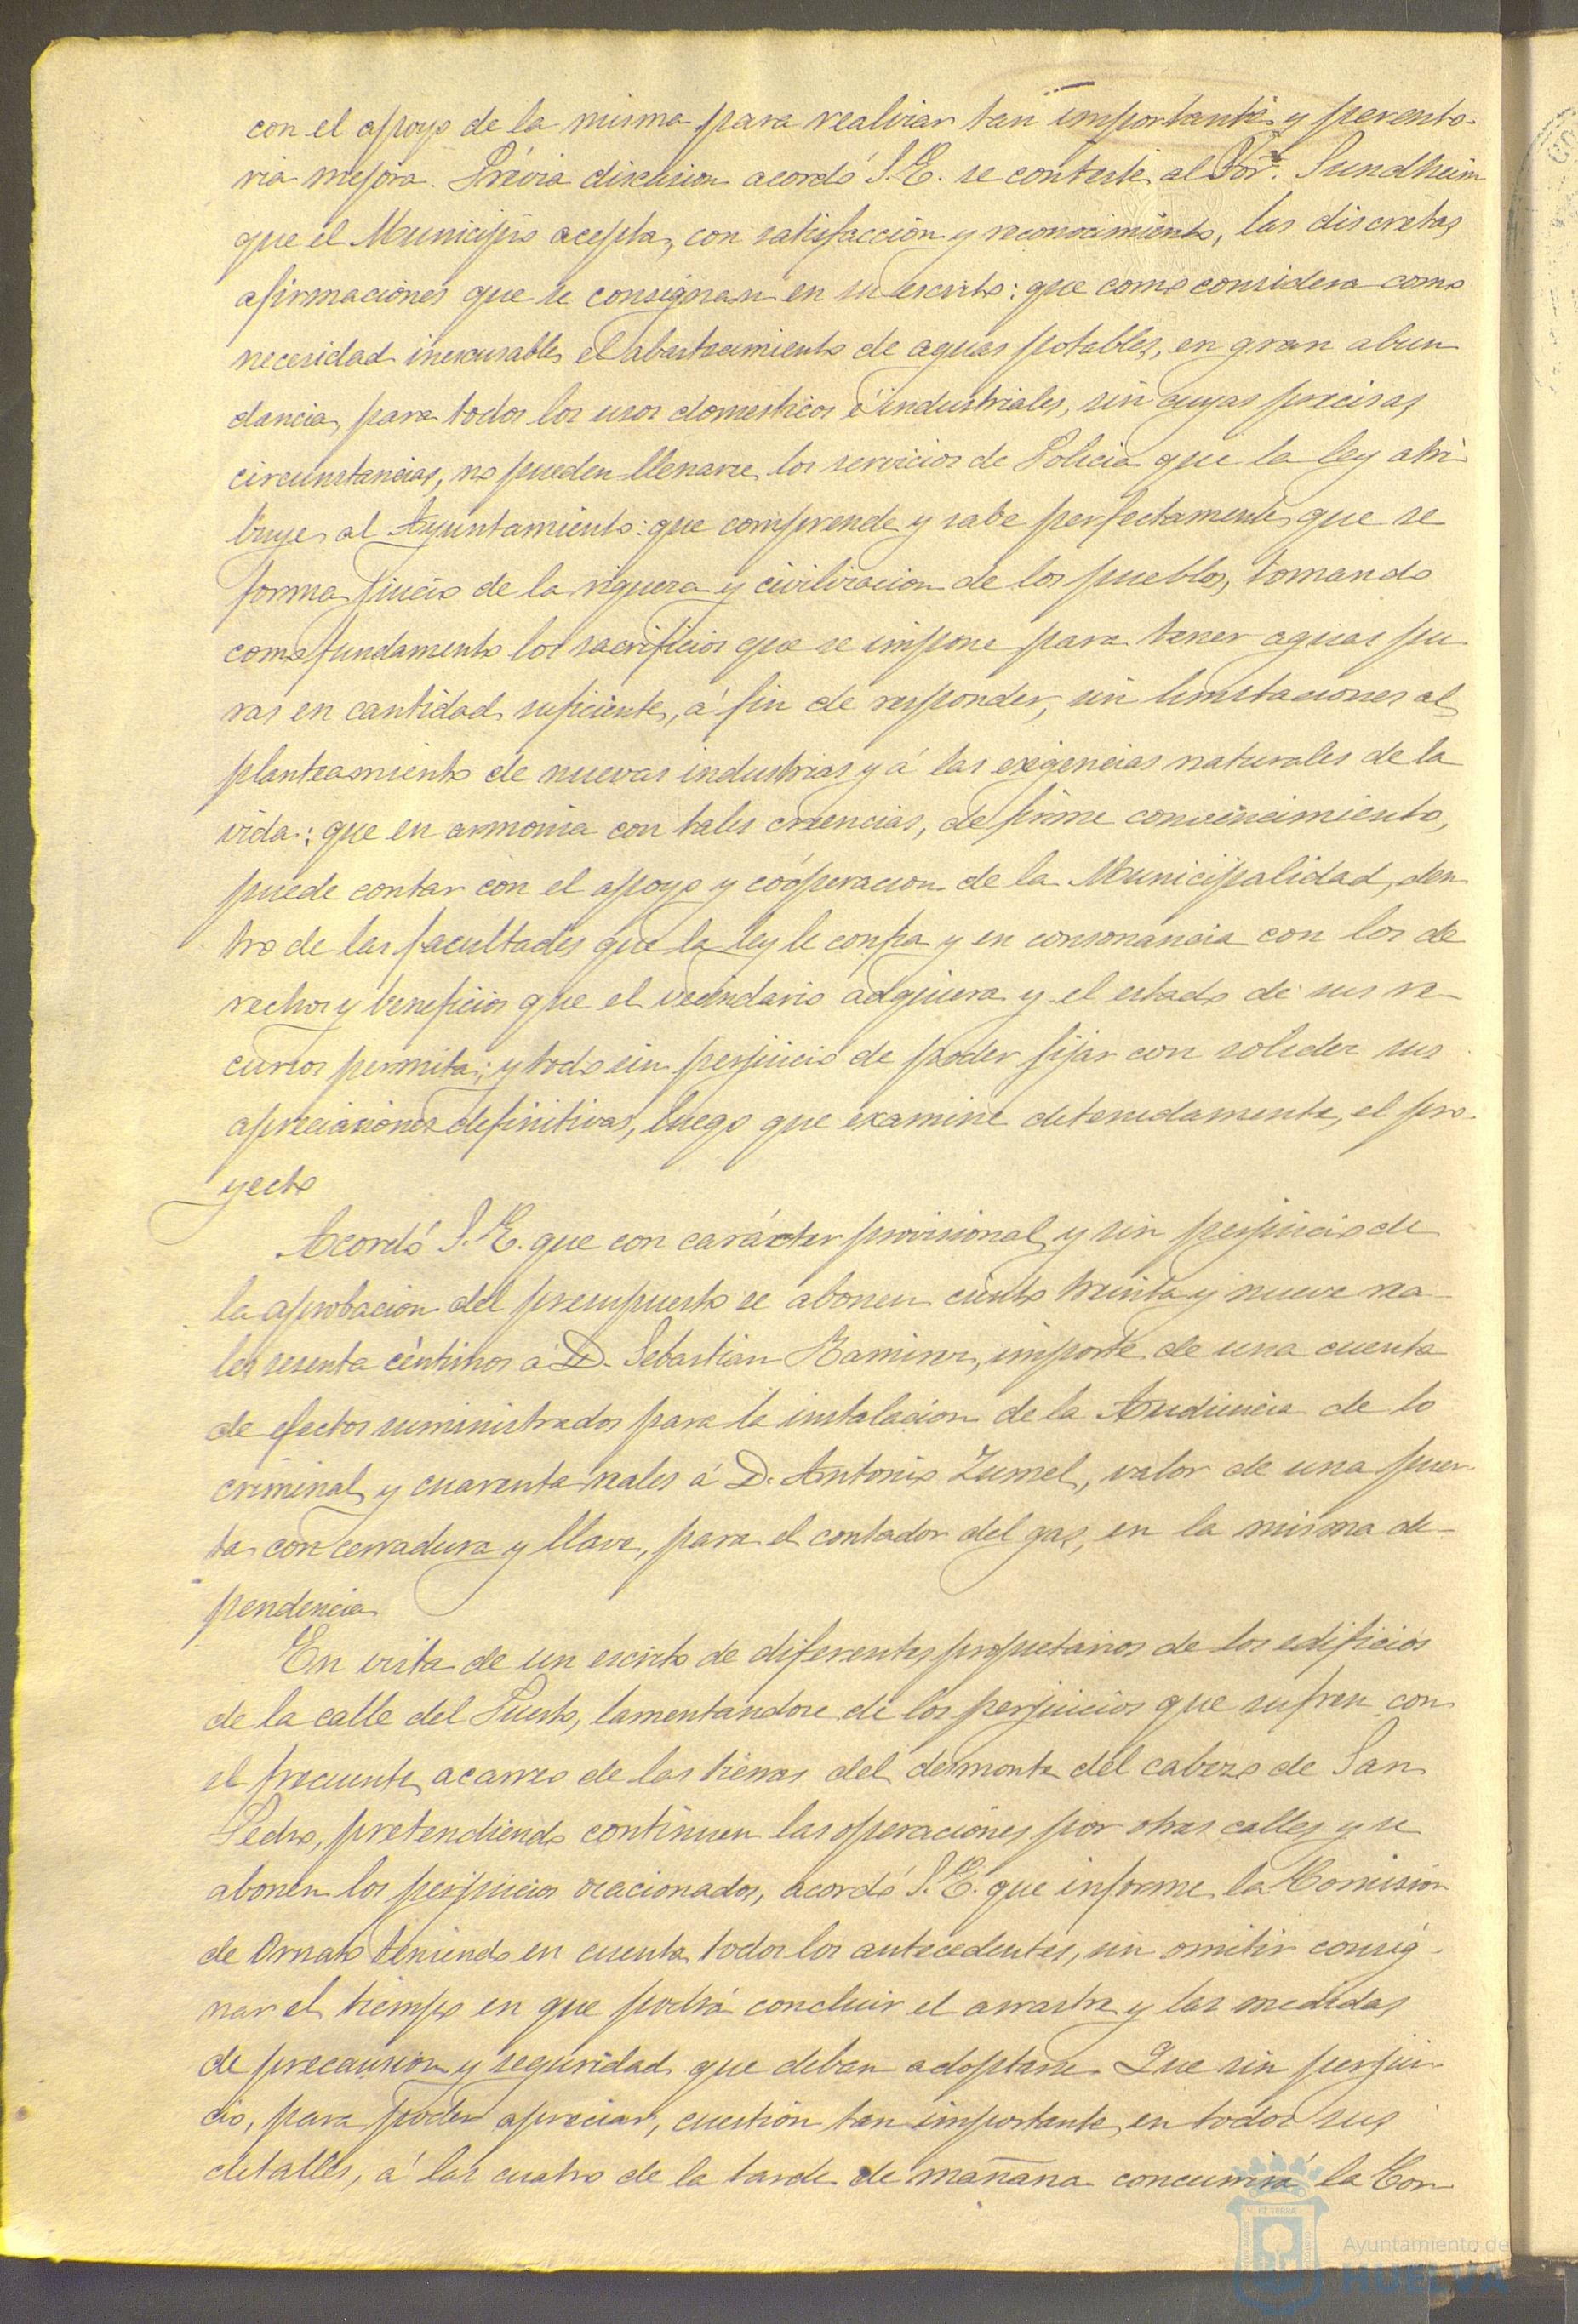 con el apoyo de la misma para realizar tan importante y perento-
ria mejora. Prévia discusion acordó S.E. se conteste al Sor. Sundheim
que el Municipio acepta, con satisfacción y reconocimiento, las discretas
afirmaciones que se consignan en su escrito: que como considera como
necesidad inescusable, el abastecimiento de aguas potables, en gran abun
dancia, para todos los usos domesticos é industriales, sin cuyas precisas
circunstancias, no pueden llenarse los servicios de Policia que la ley atri
buye al Ayuntamiento: que comprende y sabe perfectamente que se
forma juicio de la riqueza y civilizacion de los pueblos, tomando
como fundamento los sacrificios que se impone para tener aguas pu
ras en cantidad suficiente, á fin de responder, sin limitaciones al
planteamiento de nuevas industrias y á las exigencias naturales de la
vida: que en armonia con tales creencias, de firme convencimiento,
puede contar con el apoyo y coóperacion de la Municipalidad, den
tro de las facultades que la ley le confia y en consonancia con los de
rechos y beneficios que el vecindario adquiera y el estado de sus re-
cursos permita; y todo sin perjuicio de poder fijar con solidez sus
apreciaciones definitivas, luego que examine detenidamente, el pro-
yecto
Acordó S.E. que con carácter provisional y sin perjuicio de
la aprobacion del presupuesto se abonen ciento treinta y nueve rea-
les sesenta céntimos á D. Sebastian Ramirez, importe de una cuenta
de efectos suministrados para la instalacion de la Audiencia de lo
criminal y cuarenta reales á D. Antonio Zumel, valor de una puer-
ta con cerradura y llave, para el contador del gas, en la misma de-
pendencia
En vista de un escrito de diferentes propietarios de los edificios
de la calle del Puerto, lamentandose de los perjuicios que sufren con
el frecuente acarreo de las tierras del desmonte del cabezo de San
Pedro, pretendiendo continuen las operaciones por otras calles y se
abonen los perjuicios ocacionados, acordó S.E. que informe la Comision
de Ornato teniendo en cuenta todos los antecedentes, sin omitir consig-
nar el tiempo en que podrá concluir el arrastre y las medidas
de precaucion y seguridad que deban adoptarse. Que sin perjui-
cio, para poder apreciar, cuestión tan importante, en todos sus
detalles, á las cuatro de la tarde de mañana concurrirá la Cor-
Ayuntamiento de
HUELVA